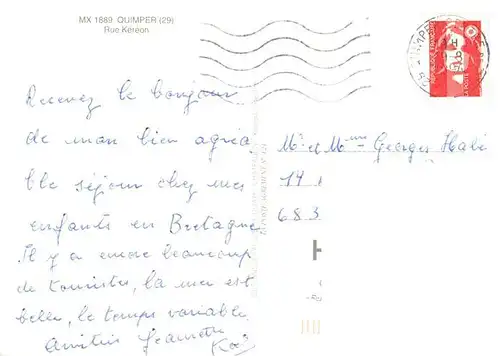 MX 1889 QUIMPER (29)
Rue Kéréon
Recevez le bonjour
de mon bien agréa
ble séjour chez mes
enfants en Bretagne
Il y a encore beaucoup
de touristes, la mer est
belle, le temps variable.
Amitiés Jeannette
Mr et Mme Georges
14
683